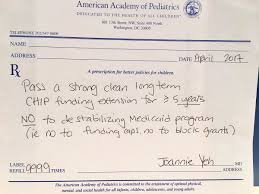 American Academy of Pediatrics
DEDICATED TO THE HEALTH OF ALL CHILDREN
Washington, DC 20005
NAME
ADDRESS DATE April 2017
A prescription for better policies for children.
Rx Pass a strong clean long term
CHIP funding extension for ≥ 5 years
NO to destabilizing Medicaid program
(ie no to funding caps, no to block grants)
LABEL
REFILLS 9999 TIMES Joannie Yeh MD
ADDRESS
The American Academy of Pediatrics is committed to the attainment of optimal physical,
mental, and social health for all infants, children, adolescents, and young adults.